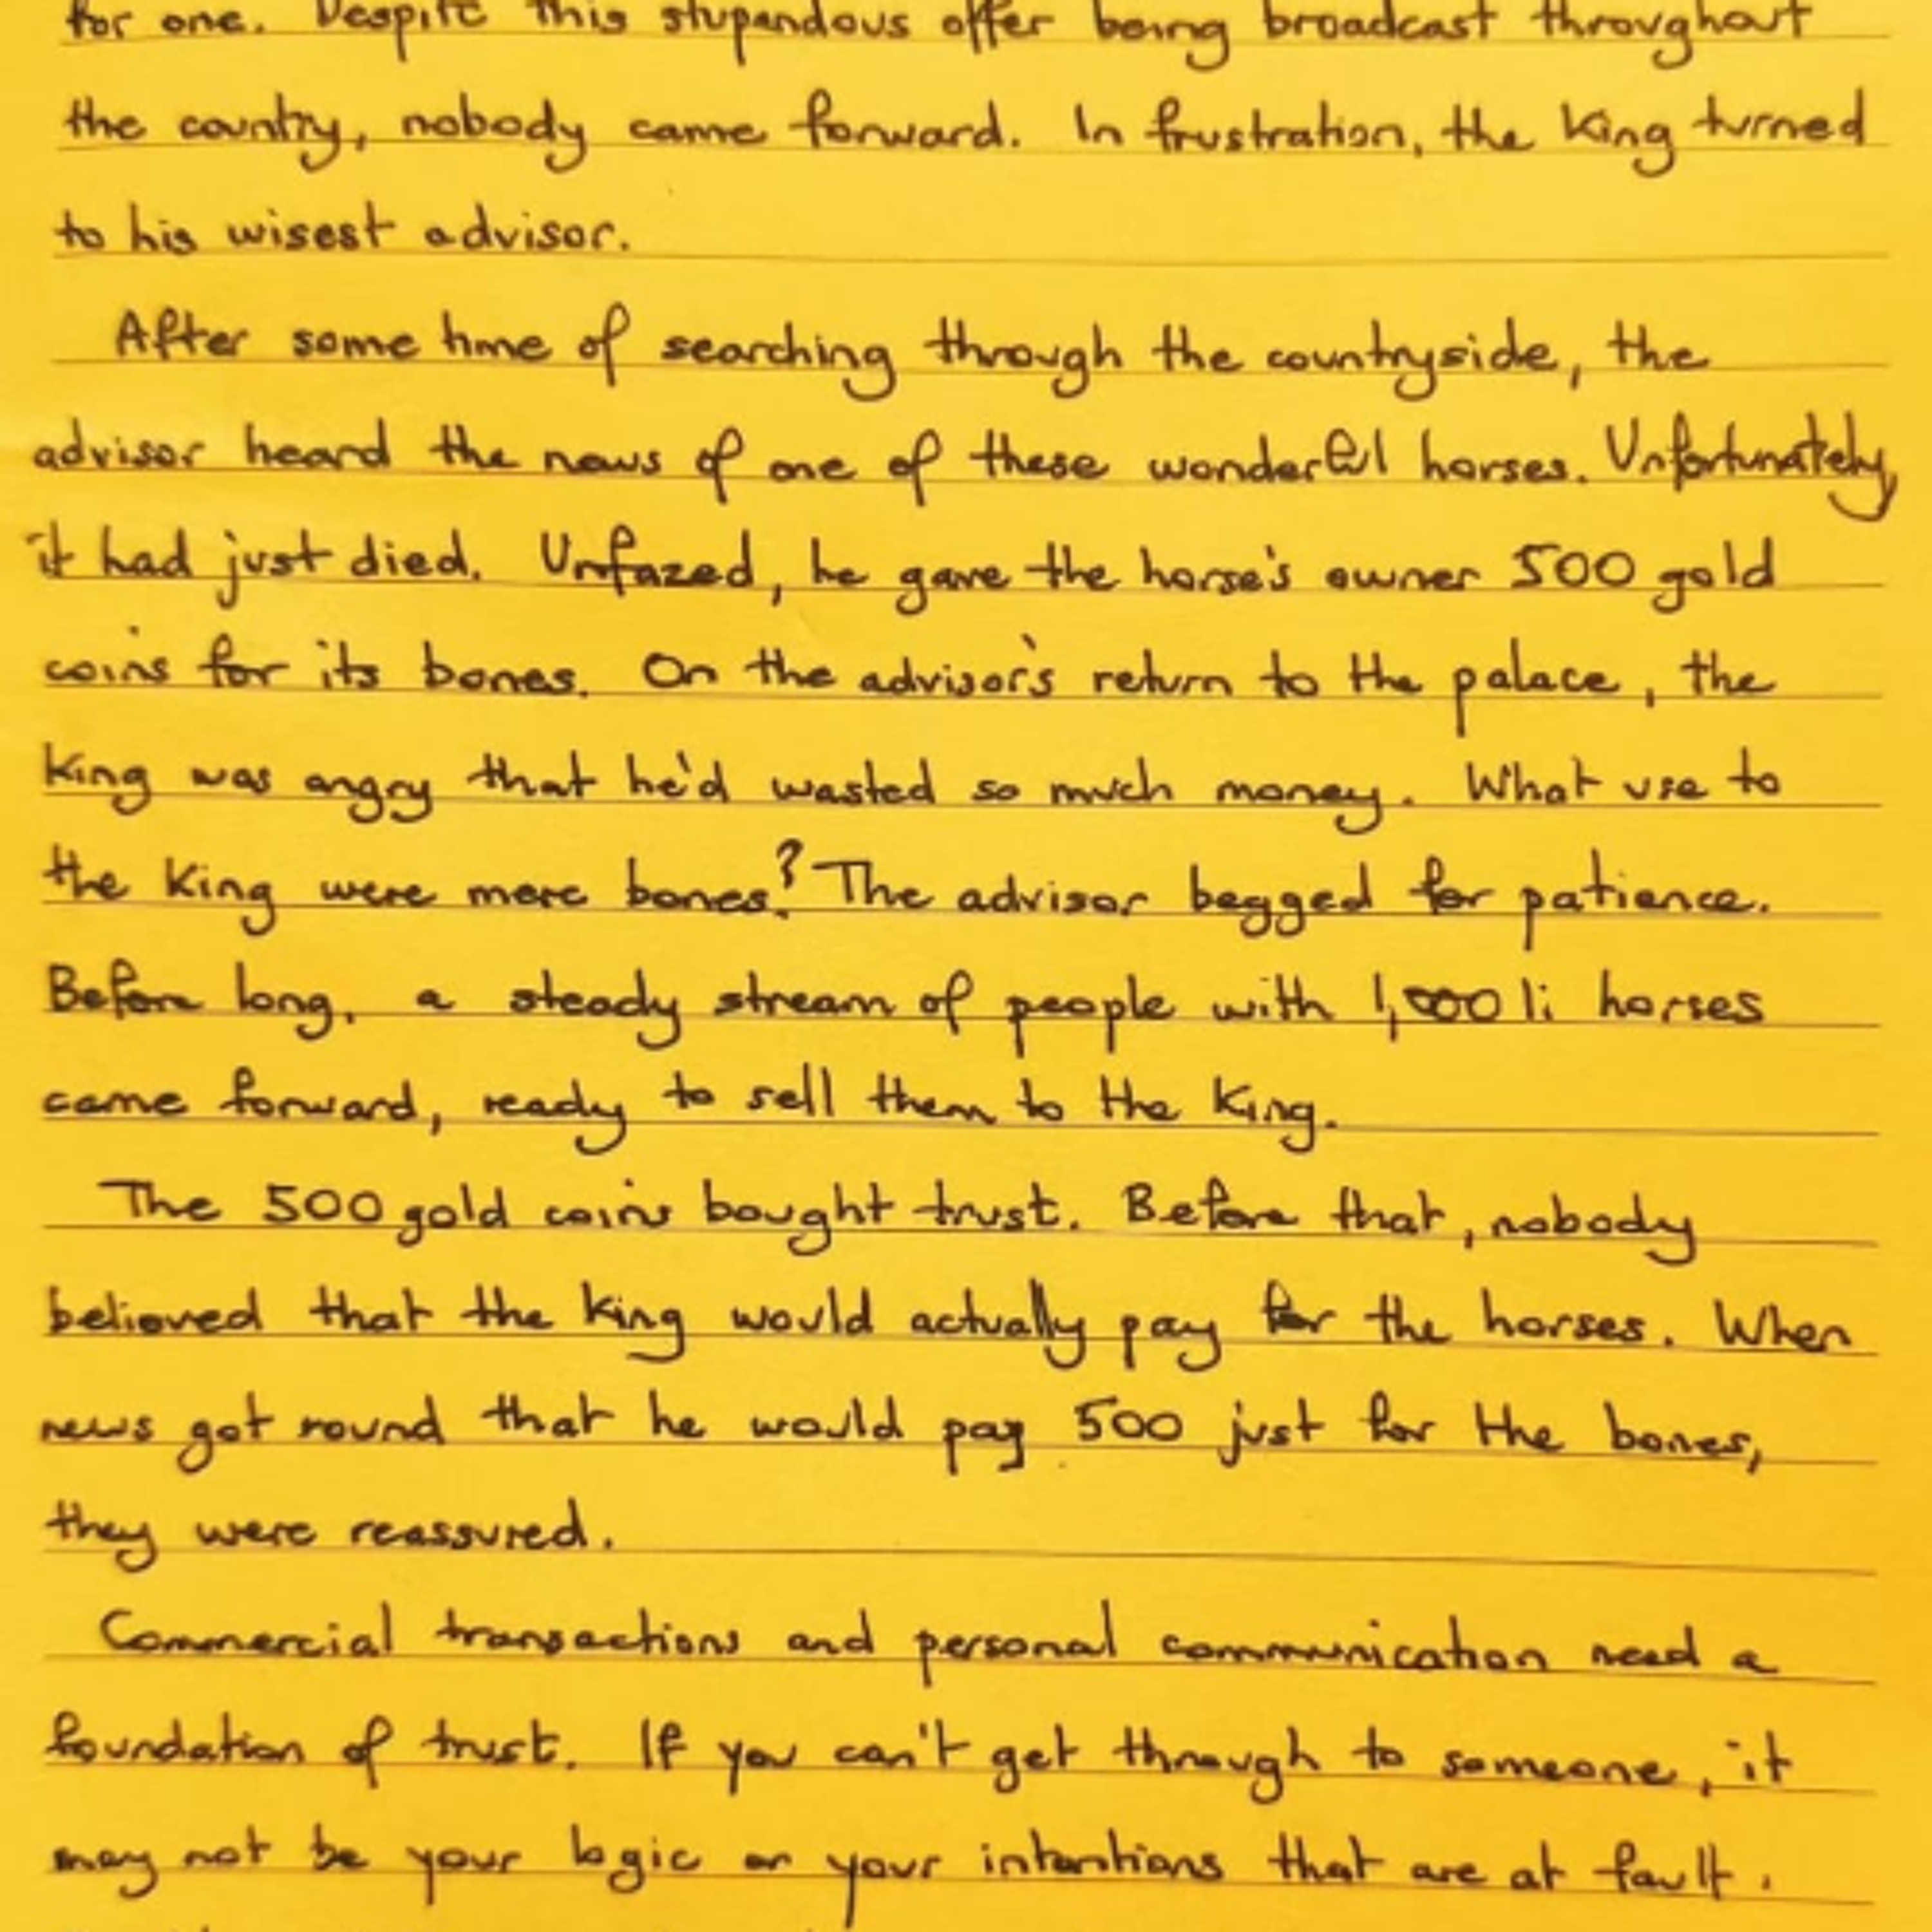 for one. Despite this stupendous offer being broadcast throughout
the country, nobody came forward. In frustration, the King turned
to his wisest advisor.
After some time of searching through the countryside, the
advisor heard the news of one of these wonderful horses. Unfortunately,
it had just died. Unfazed, he gave the horse's owner 500 gold
coins for its bones. On the advisor's return to the palace, the
King was angry that he'd wasted so much money. What use to
the King were mere bones? The advisor begged for patience.
Before long, a steady stream of people with 1,000 li horses
came forward, ready to sell them to the King.
The 500 gold coins bought trust. Before that, nobody
believed that the King would actually pay for the horses. When
news got round that he would pay 500 just for the bones,
they were reassured.
Commercial transactions and personal communication need a
foundation of trust. If you can't get through to someone, it
may not be your logic or your intentions that are at fault.